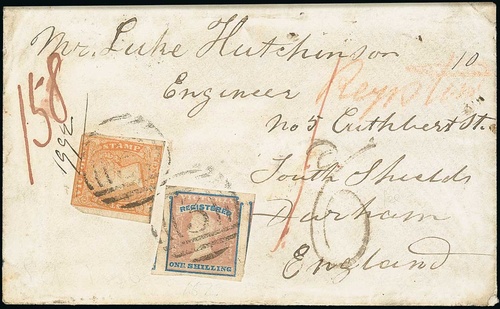 Mr. Luke Hutchinson
10
Engineer
No 5 Cuthbert St.
South Shields
Durham
England
158
1992
6
STAMP
REGISTERED
ONE SHILLING